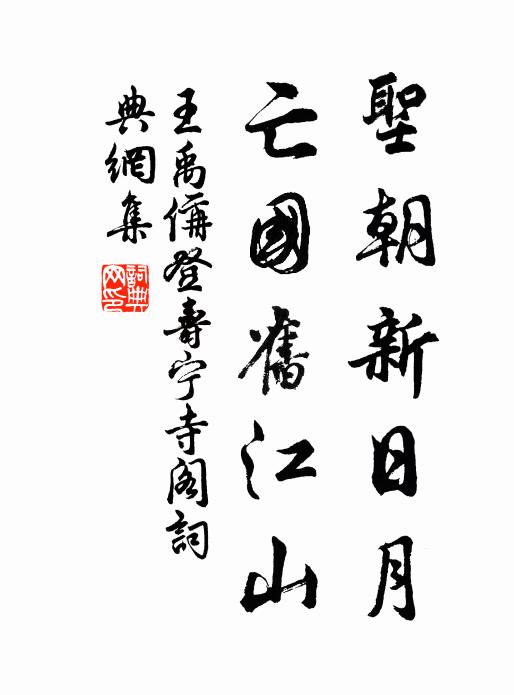 聖朝新日月
亡國舊江山
王禹偁登壽宁寺阁詞
典網集
詞典
网印